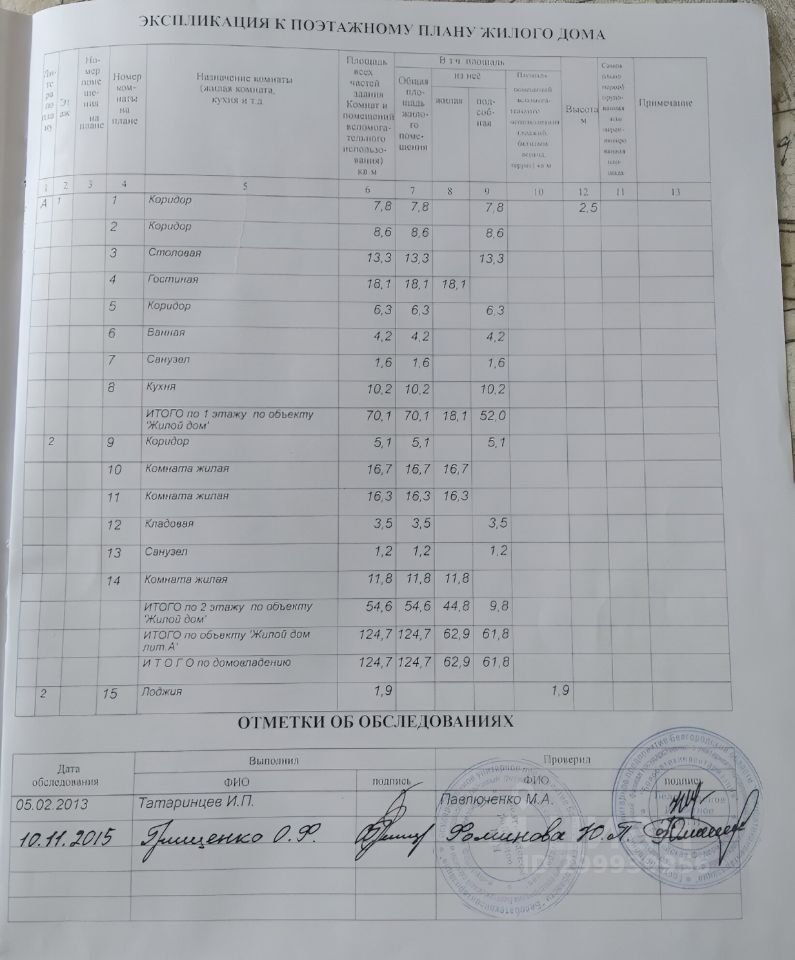 ЭКСПЛИКАЦИЯ К ПОЭТАЖНОМУ ПЛАНУ ЖИЛОГО ДОМА
Ли-те-ра по пла-ну | Эт аж | Но-мер поме ще-ния на плане | Номер ком-наты на плане | Назначение комнаты (жилая комната, кухня и т.д | Площадь всех частей здания Комнат и помещений вспомога-тельного использо-вания) кв м | В т ч площадь | Общая пло-щадь жило-го поме-щения | из неё | жилая | под-соб-ная | Высота м | Примечание
1 2 3 4 5 6 7 8 9 10 12 11 13
А 1 1 Коридор 7,8 7,8 7,8 2,5
2 Коридор 8,6 8,6 8,6
3 Столовая 13,3 13,3 13,3
4 Гостиная 18,1 18,1 18,1
5 Коридор 6,3 6,3 6,3
6 Ванная 4,2 4,2 4,2
7 Санузел 1,6 1,6 1,6
8 Кухня 10,2 10,2 10,2
ИТОГО по 1 этажу по объекту 70,1 70,1 18,1 52,0
'Жилой дом'
2 9 Коридор 5,1 5,1 5,1
10 Комната жилая 16,7 16,7 16,7
11 Комната жилая 16,3 16,3 16,3
12 Кладовая 3,5 3,5 3,5
13 Санузел 1,2 1,2 1,2
14 Комната жилая 11,8 11,8 11,8
ИТОГО по 2 этажу по объекту 54,6 54,6 44,8 9,8
'Жилой дом'
ИТОГО по объекту 'Жилой дом 124,7 124,7 62,9 61,8
лит.А'
И Т О Г О по домовладению 124,7 124,7 62,9 61,8
2 15 Лоджия 1,9 1,9
ОТМЕТКИ ОБ ОБСЛЕДОВАНИЯХ
Дата обследования | Выполнил | Проверил
ФИО | подпись | ФИО | подпись
05.02.2013 Татаринцев И.П. Павлюченко М.А.
10.11.2015 Грищенко О.Ф. Фоминова Ю.П.